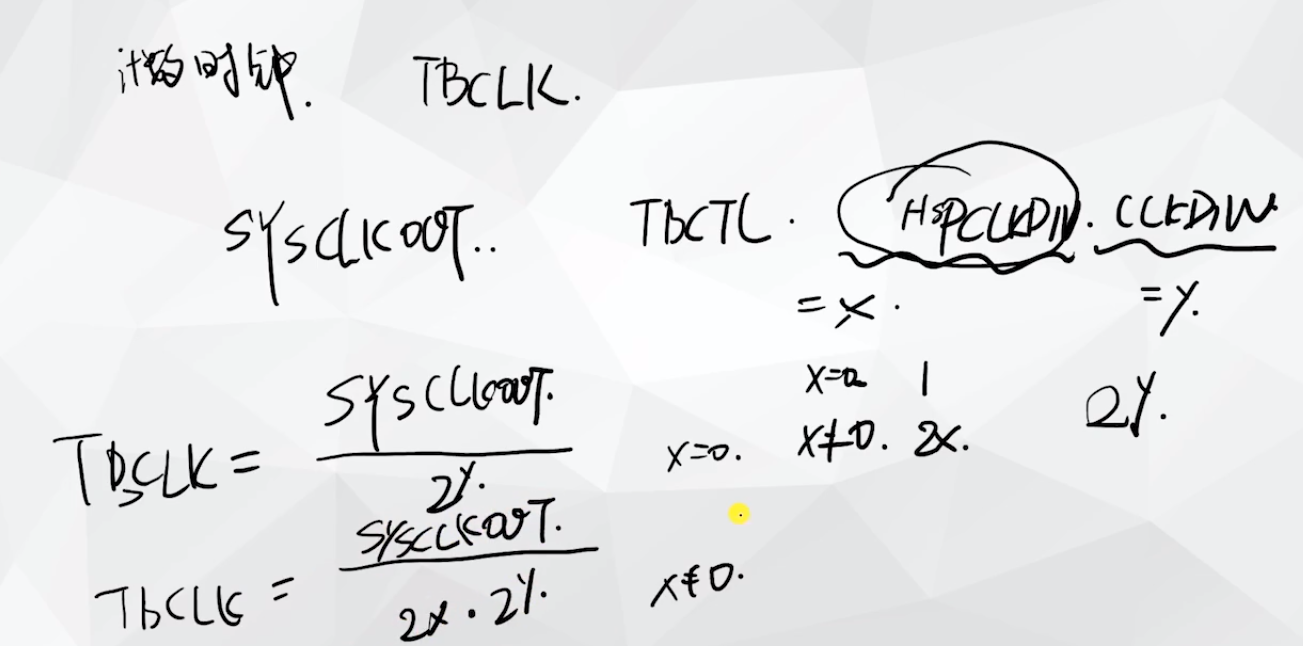 计数时钟. TBCLK.
SYSCLKOUT.. TBCTL. HSPCLKDIV. CLKDIV.
=x. =y.
x=0 1
x≠0. 2x. 2^y.
TBCLK = SYSCLKOUT. / 2^y. x=0.
TBCLK = SYSCLKOUT. / 2x · 2^y. x≠0.